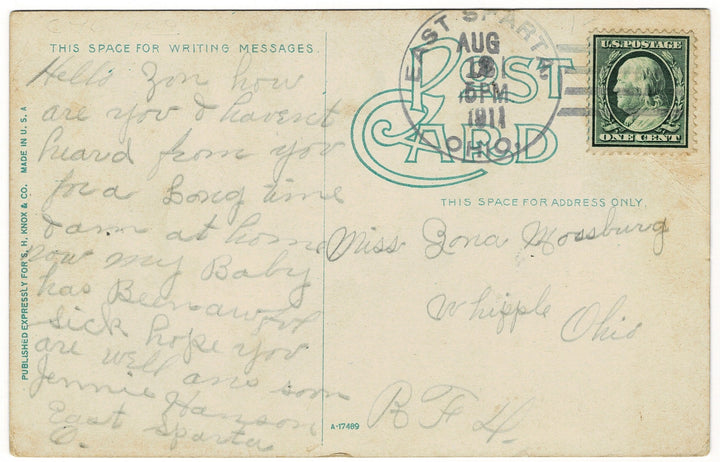 THIS SPACE FOR WRITING MESSAGES.
Hello Zon how
are you I havent
heard from you
for a Long time
I am at home
now my Baby
has Been awful
sick hope you
are well ans soon
Jennie Hanson
East Sparta
O.
PUBLISHED EXPRESSLY FOR S. H. KNOX & CO. MADE IN U. S. A
EAST SPARTA
AUG
5PM
1911
OHIO.
POST
CARD
U.S. POSTAGE
ONE CENT
THIS SPACE FOR ADDRESS ONLY.
Miss Zona Mossburg
Whipple Ohio
R F 4.
A-17489